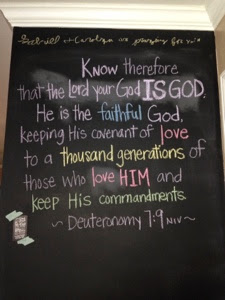 Gabriel + Carolyn are praying for you
KNOW therefore
that the Lord your God IS GOD.
He is the faithful God,
keeping His covenant of love
to a thousand generations of
those who love HIM and
keep His commandments.
~ Deuteronomy 7:9 NIV ~